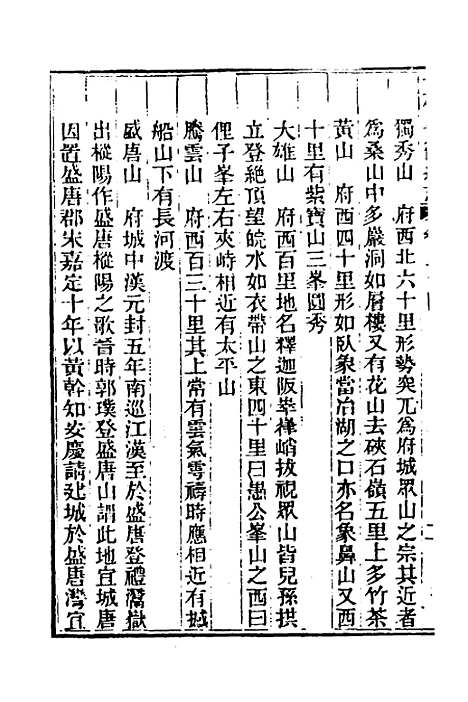 獨秀山　府西北六十里形勢突兀為府城眾山之宗其近者
為桑山中多巖洞如層樓又有花山去硤石嶺五里上多竹茶
黃山　府西四十里形如臥象當冶湖之口亦名象鼻山又西
十里有紫寶山三峯圓秀
大雄山　府西百里地名釋迦阪崒嵂峭拔視眾山皆兒孫拱
立登絶頂望皖水如衣帶山之東四十里曰愚公峯山之西曰
俚子峯左右夾峙相近有太平山
騰雲山　府西百三十里其上常有雲氣雩禱時應相近有搣
船山下有長河渡
盛唐山　府城中漢元封五年南巡江漢至於盛唐登禮灊嶽
出樅陽作盛唐樅陽之歌晉時郭璞登盛唐山謂此地宜城唐
因置盛唐郡宋嘉定十年以黃幹知安慶請建城於盛唐灣宜